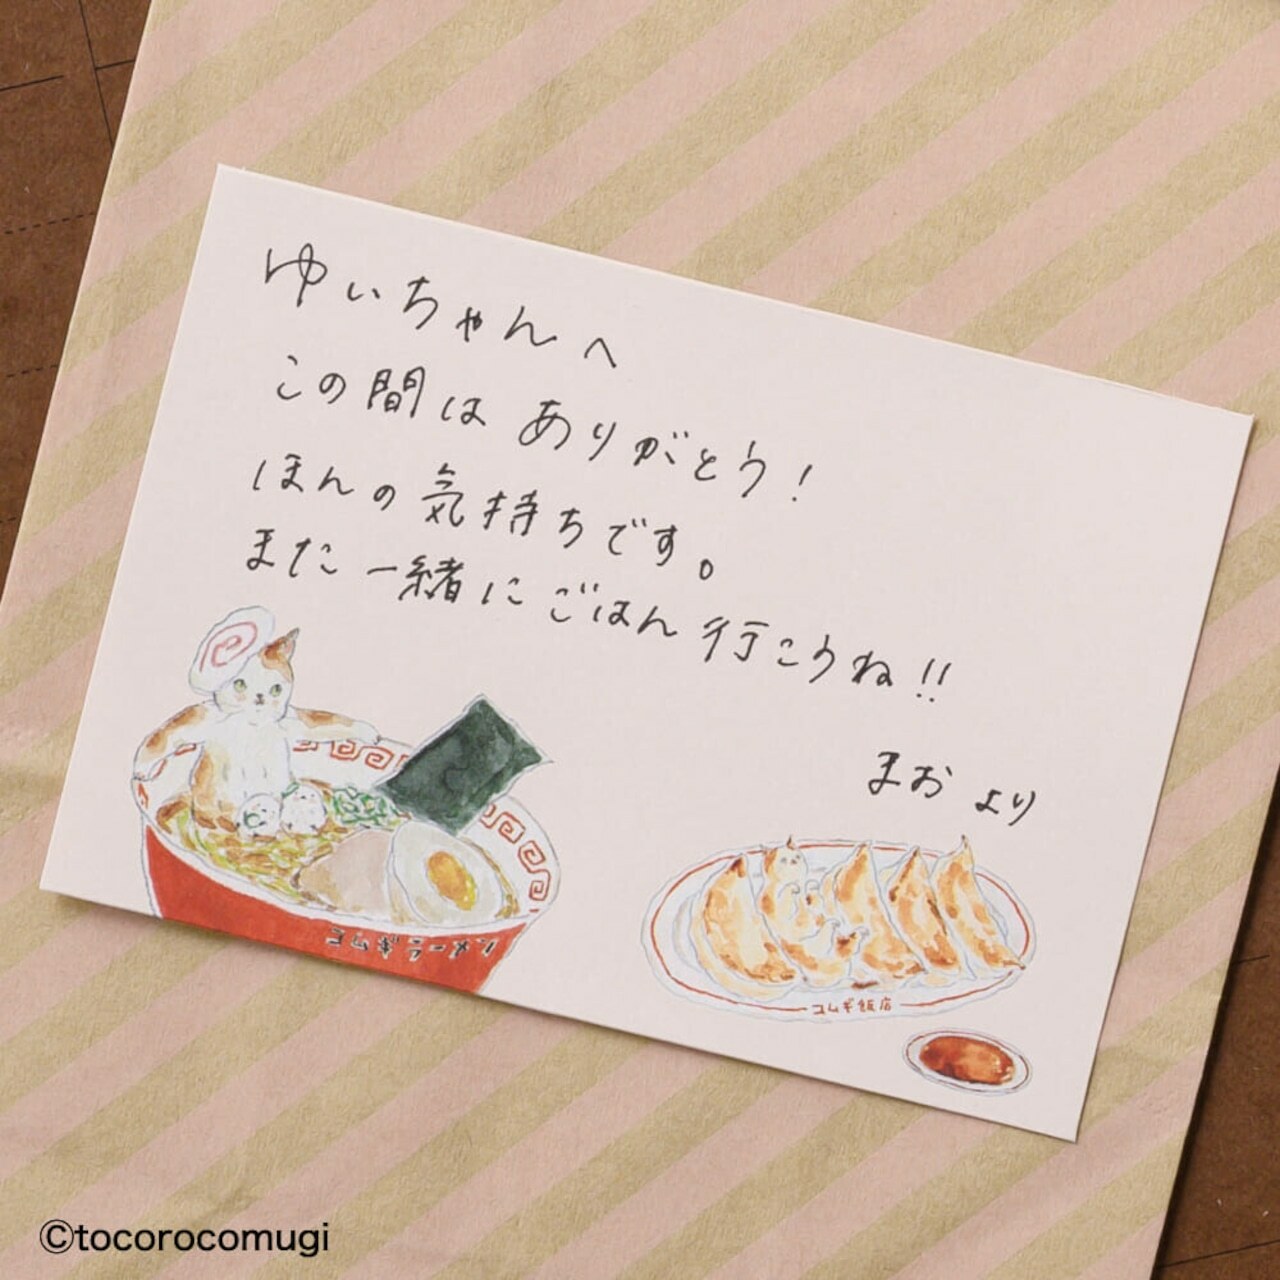 ゆいちゃんへ
この間は ありがとう！
ほんの気持ちです。
また一緒にごはん行こうね!!
まおより
コムギラーメン
コムギ飯店
©tocorocomugi